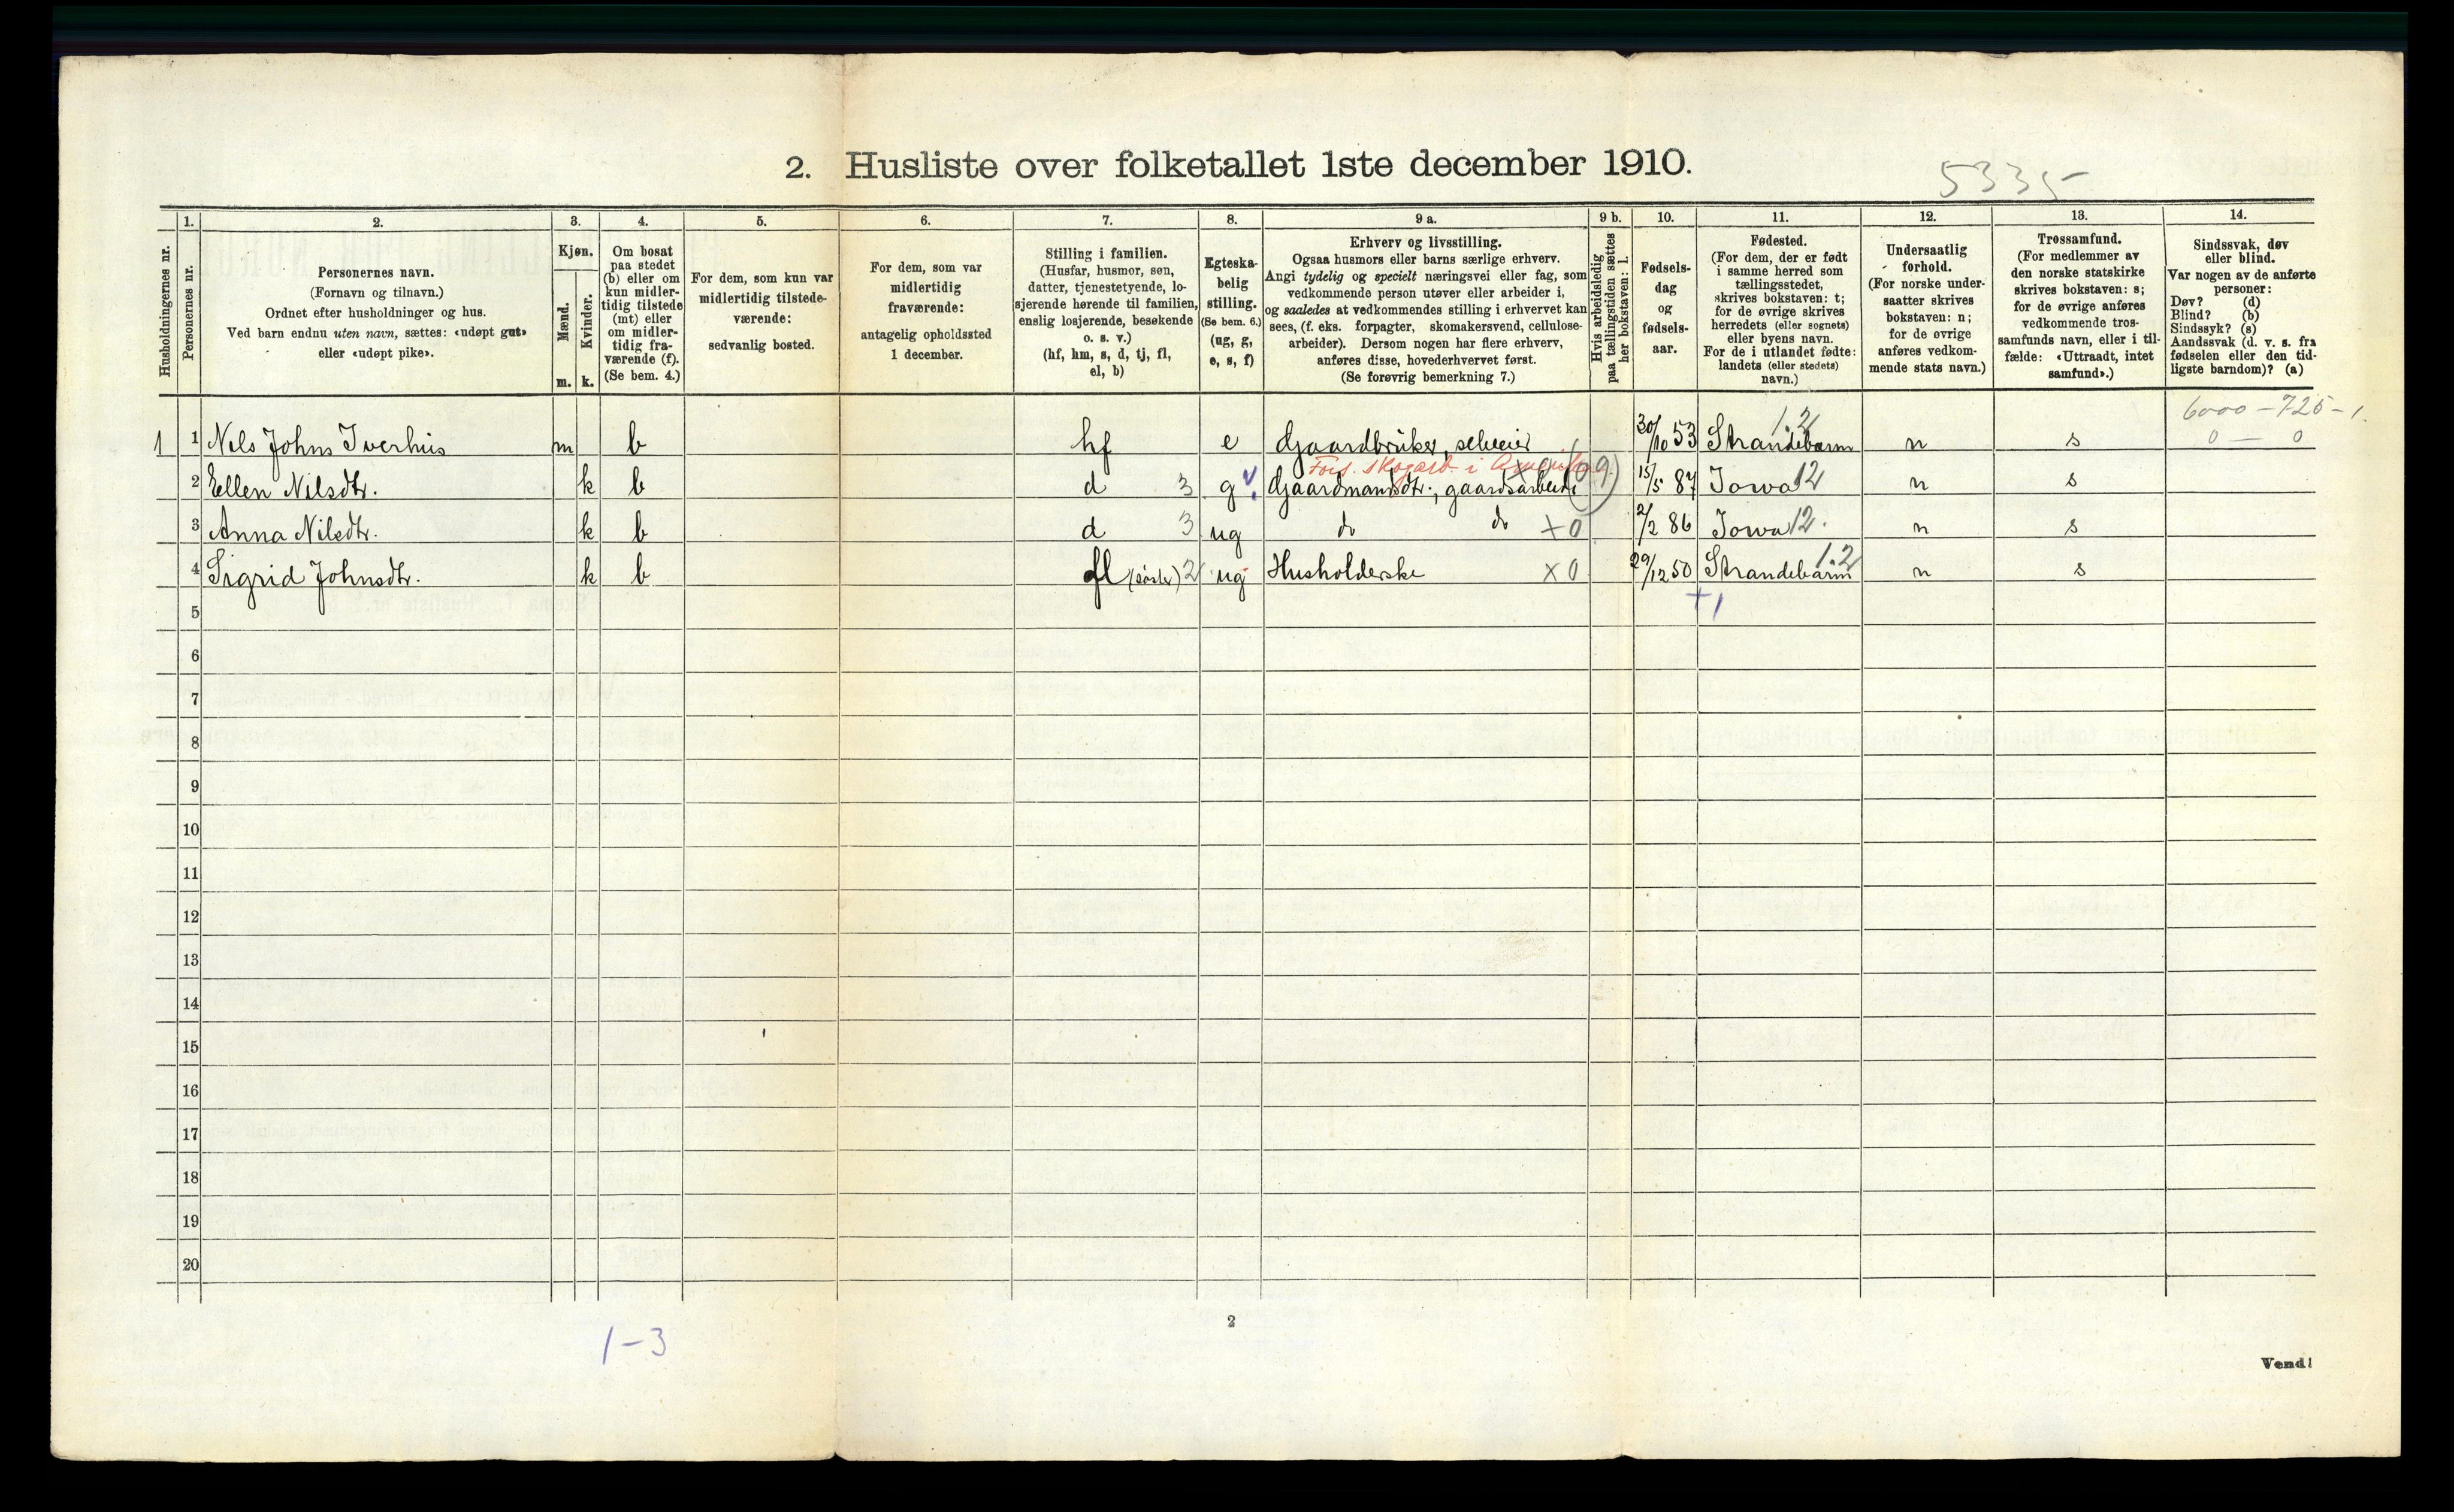 2. Husliste over folketallet 1ste december 1910.
5335
Husholdningernes nr.
1.
Personernes nr.
2.
Personernes navn.
(Fornavn og tilnavn.)
Ordnet efter husholdninger og hus.
Ved barn endnu uten navn, sættes: «udøpt gut»
eller «udøpt pike».
3.
Kjøn.
Mænd.
Kvinder.
m. k.
4.
Om bosat
paa stedet
(b) eller om
kun midler-
tidig tilstede
(mt) eller
om midler-
tidig fra-
værende (f).
(Se bem. 4.)
5.
For dem, som kun var
midlertidig tilstede-
værende:
sedvanlig bosted.
6.
For dem, som var
midlertidig
fraværende:
antagelig opholdssted
1 december.
7.
Stilling i familien.
(Husfar, husmor, søn,
datter, tjenestetyende, lo-
sjerende hørende til familien,
enslig losjerende, besøkende
o. s. v.)
(hf, hm, s, d, tj, fl,
el, b)
8.
Egteska-
belig
stilling.
(Se bem. 6.)
(ug, g,
e, s, f)
9 a.
Erhverv og livsstilling.
Ogsaa husmors eller barns særlige erhverv.
Angi tydelig og specielt næringsvei eller fag, som
vedkommende person utøver eller arbeider i,
og saaledes at vedkommendes stilling i erhvervet kan
sees, (f. eks. forpagter, skomakersvend, cellulose-
arbeider). Dersom nogen har flere erhverv,
anføres disse, hovederhvervet først.
(Se forøvrig bemerkning 7.)
9 b.
Hvis arbeidsledig
paa tællingstiden sættes
her bokstaven: l.
10.
Fødsels-
dag
og
fødsels-
aar.
11.
Fødested.
(For dem, der er født
i samme herred som
tællingsstedet,
skrives bokstaven: t;
for de øvrige skrives
herredets (eller sognets)
eller byens navn.
For de i utlandet fødte:
landets (eller stedets)
navn.)
12.
Undersaatlig
forhold.
(For norske under-
saatter skrives
bokstaven: n;
for de øvrige
anføres vedkom-
mende stats navn.)
13.
Trossamfund.
(For medlemmer av
den norske statskirke
skrives bokstaven: s;
for de øvrige anføres
vedkommende tros-
samfunds navn, eller i til-
fælde: «Uttraadt, intet
samfund».)
14.
Sindssvak, døv
eller blind.
Var nogen av de anførte
personer:
Døv? (d)
Blind? (b)
Sindssyk? (s)
Aandssvak (d. v. s. fra
fødselen eller den tid-
ligste barndom)? (a)
6000 - 725 - 1.
1 1 Nils Johns Iverhus m b hf e Gaardbruker, selveier 30/10 53 Strandebarm 1.2 n s 0 — 0
Fors. skogarb. i Amerika
2 Ellen Nilsdtr. k b d 3 g Gaardmandsdtr., gaardsarbeide 15/5 87 Iowa 12 n s
3 Anna Nilsdtr. k b d 3 ug do do x0 2/2 86 Iowa 12. n s
4 Sigrid Johnsdtr. k b fl (söster) 2 ug Husholderske x0 29/12 50 Strandebarm 1.2 n s
+1
5
6
7
8
9
10
11
12
13
14
15
16
17
18
19
20
1-3
2
Vend!